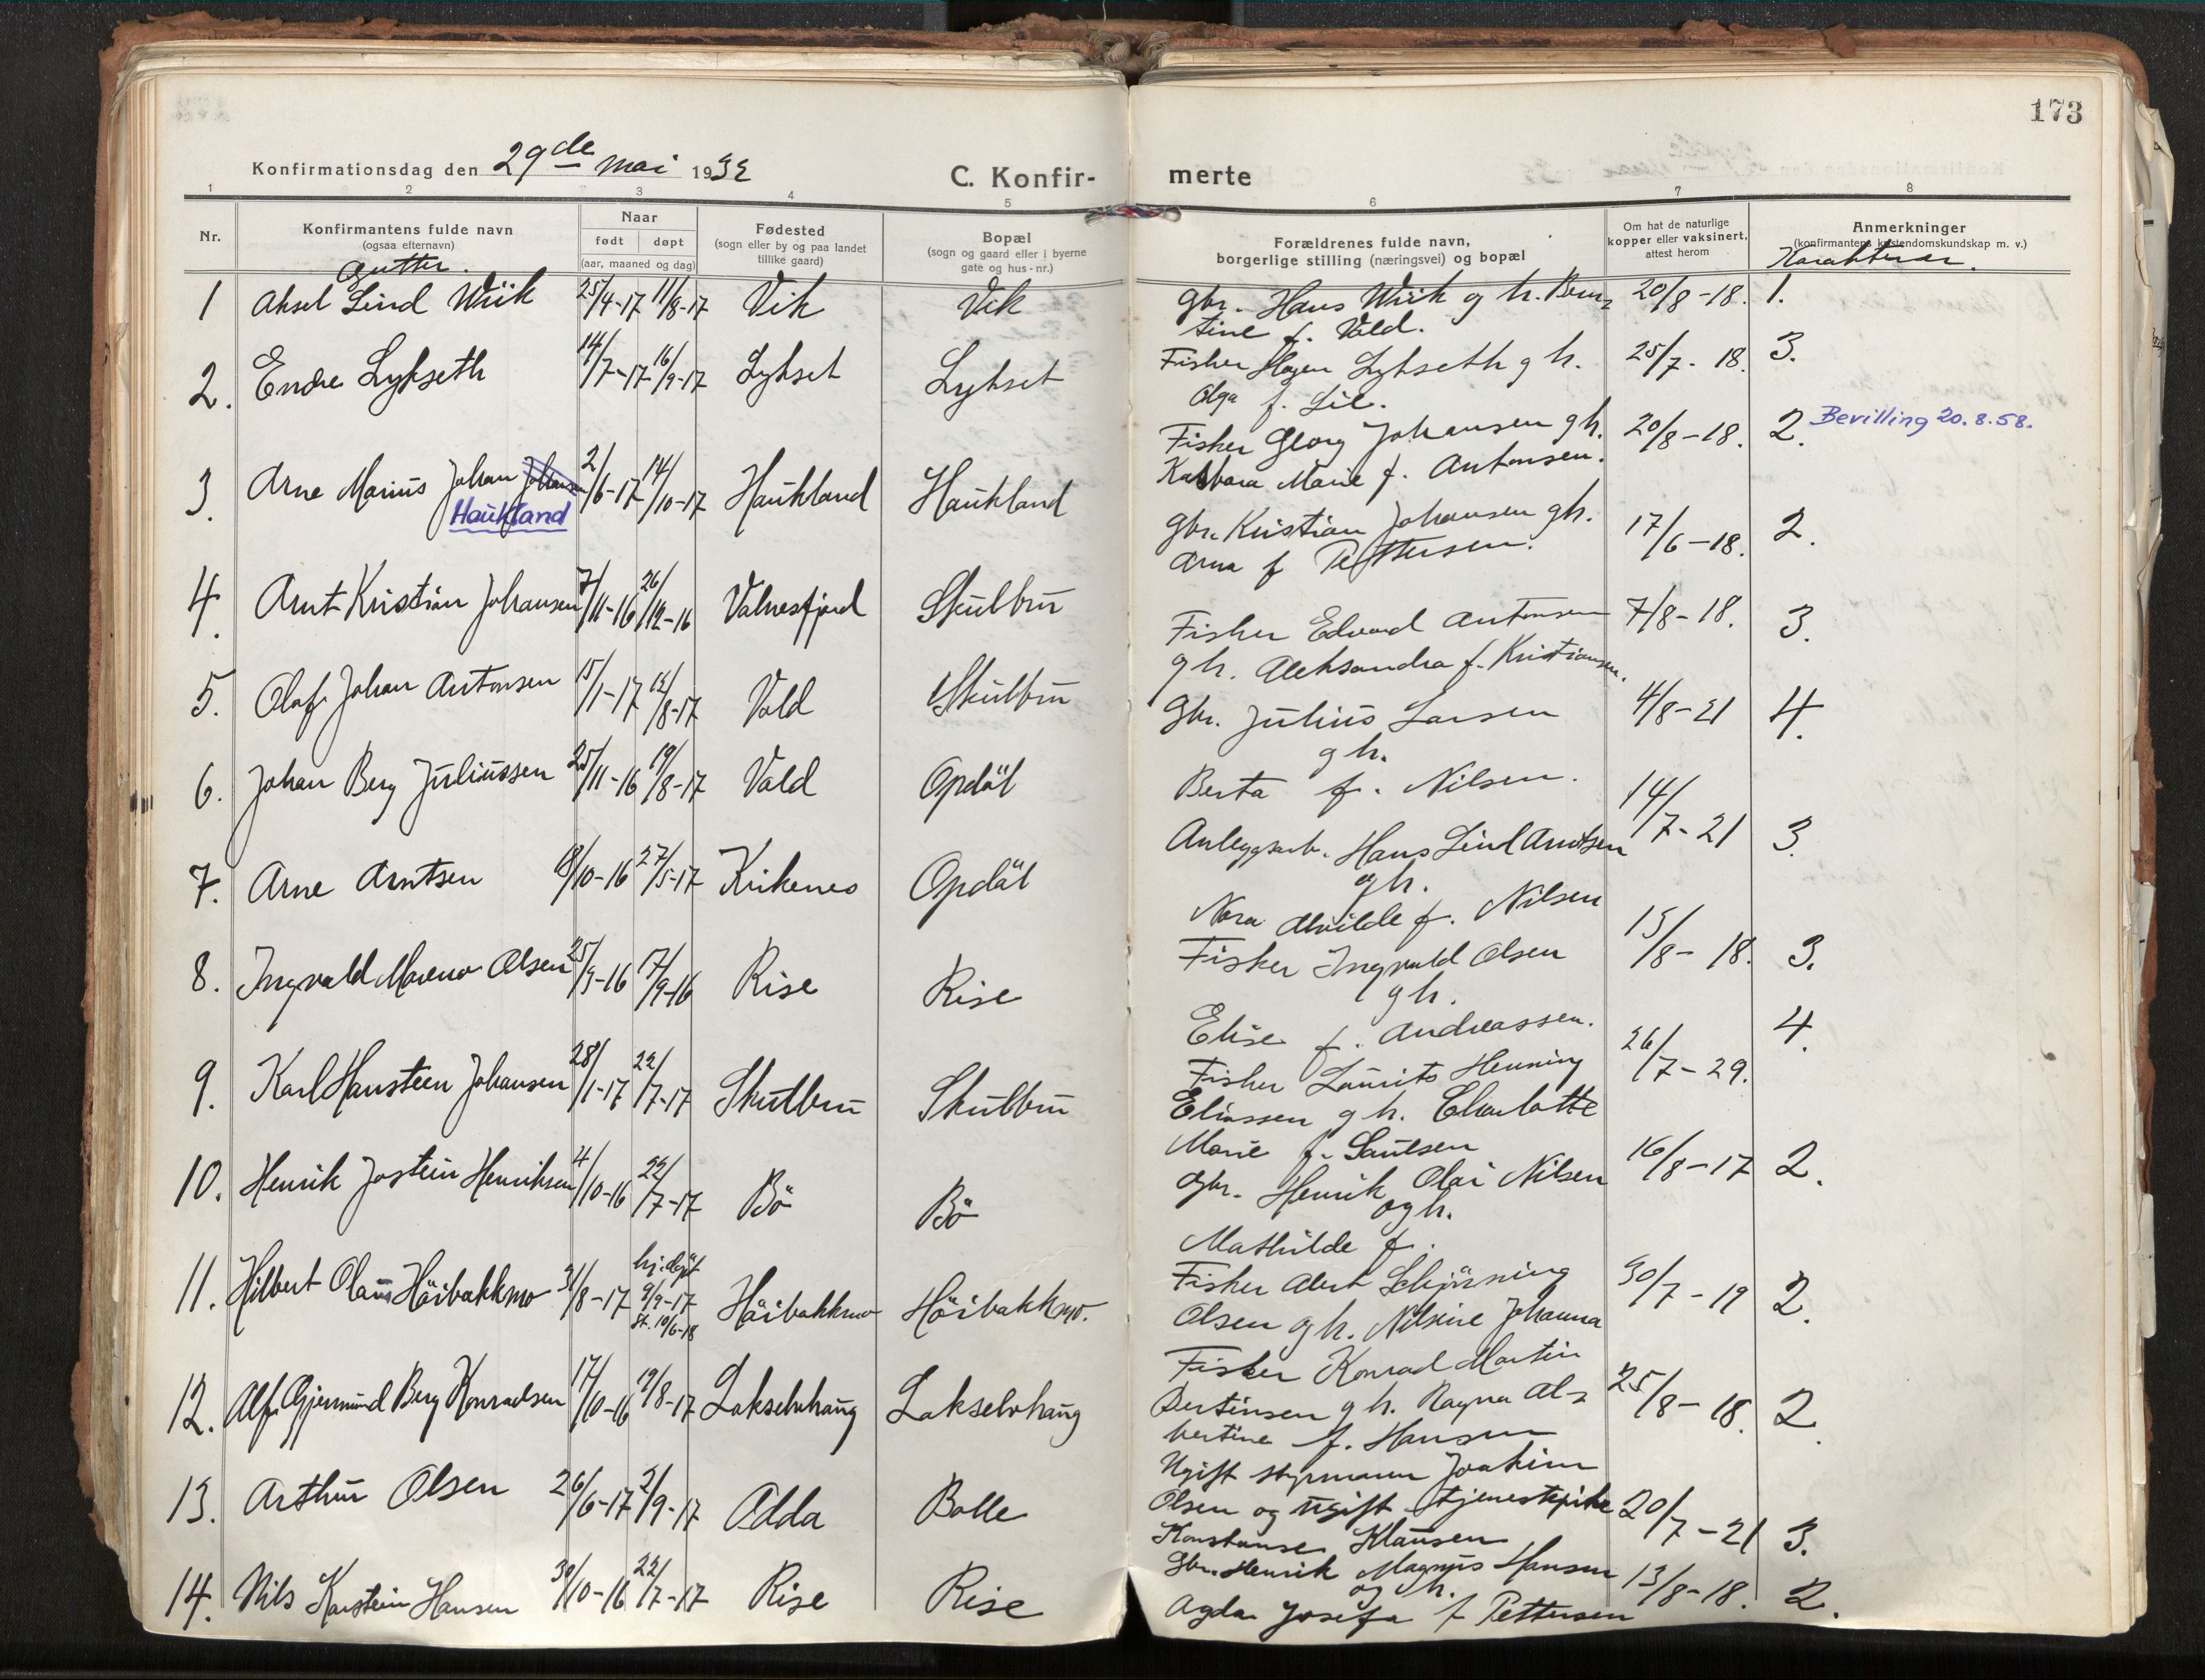 173
Konfirmationsdag den 29de mai 1932
C. Konfir-
merte
1 2 3 4 5 6 7 8
Nr.
Konfirmantens fulde navn
(ogsaa efternavn)
Gutter.
Naar
født døpt
(aar, maaned og dag)
Fødested
(sogn eller by og paa landet
tillike gaard)
Bopæl
(sogn og gaard eller i byerne
gate og hus-nr.)
Forældrenes fulde navn,
borgerlige stilling (næringsvei) og bopæl
Om hat de naturlige
kopper eller vaksinert,
attest herom
Anmerkninger
(konfirmantens kristendomskundskap m. v.)
Karakterer.
1 Aksel Lind Wiik 25/4-17 11/8-17 Vik Vik
Gbr. Hans Wiik og h. Bern- 20/8-18. 1.
tine f. Vold.
2. Endre Lykseth 14/7-17 16/9-17 Lykset Lykset
Fisker Hagen Lykseth g h. 25/7-18. 3.
Olga f. Lil.
3. Arne Marius Johan Johansen 2/6-17 14/10-17 Haukland Haukland
Haukland
Fisker Georg Johansen g h. 20/8-18. 2. Bevilling 20.8.58.
Marie f. Antonsen.
4. Arnt Kristian Johansen 7/11-16 26/12-16 Valnesfjord Skulbru
Gbr. Kristian Johansen gh. 17/6-18. 2.
Arna f Pettersen.
5. Olaf Johan Antonsen 15/1-17 12/8-17 Vold Skulbru
Fisker Edvard Antonsen 7/8-18. 3.
g h. Aleksandra f. Kristiansen.
6. Johan Berg Juliussen 25/11-16 19/8-17 Vold Opdal
Gbr. Julius Larsen 4/8-21 4.
g h.
Berta f. Nilsen.
7. Arne Arntsen 8/10-16 27/5-17 Kirkenes Opdal
Anleggsarb. Hans Lind Arntsen 14/7-21 3.
g h.
Nora Alvilde f. Nilsen
8. Ingvald Moreno Olsen 25/3-16 17/9-16 Rise Rise
Fisker Ingvald Olsen 15/8-18. 3.
g h.
Elise f. Andreassen.
9. Karl Hansteen Johansen 28/1-17 22/7-17 Skulbru Skulbru
Fisker Laurits Henning 26/7-29. 4.
Eliassen g h. Charlotte
Marie f. Paulsen
10. Henrik Jostein Henriksen 4/10-16 22/7-17 Bö Bö
Gbr. Henrik Olai Nilsen 16/8-17 2.
og h.
Mathilde f.
11. Hilbert Olaus Höibakkmo 31/8-17 hj.døpt 9/9-17 st. 10/6-18 Höibakkmo Höibakkmo.
Fisker Albert Schjöning 30/7-19 2.
Olsen g h. Nilsine Johanna
12. Alf Gjermund Berg Konradsen 17/10-16 19/8-17 Lakselvhaug Lakselvhaug
Fisker Konrad Martin
Bertinsen g h. Ragna Al- 25/8-18. 2.
bertine f. Hansen
13. Arthur Olsen 26/6-17 2/9-17 Odda Bolle
Ugift styrmann Joakim
Olsen og ugift tjenestepike 20/7-21 3.
Konstanse Klausen
14. Nils Karstein Hansen 30/10-16 22/7-17 Rise Rise
Gbr. Henrik Magnus Hansen 13/8-18. 2.
og h.
Agda Josefa f Pettersen